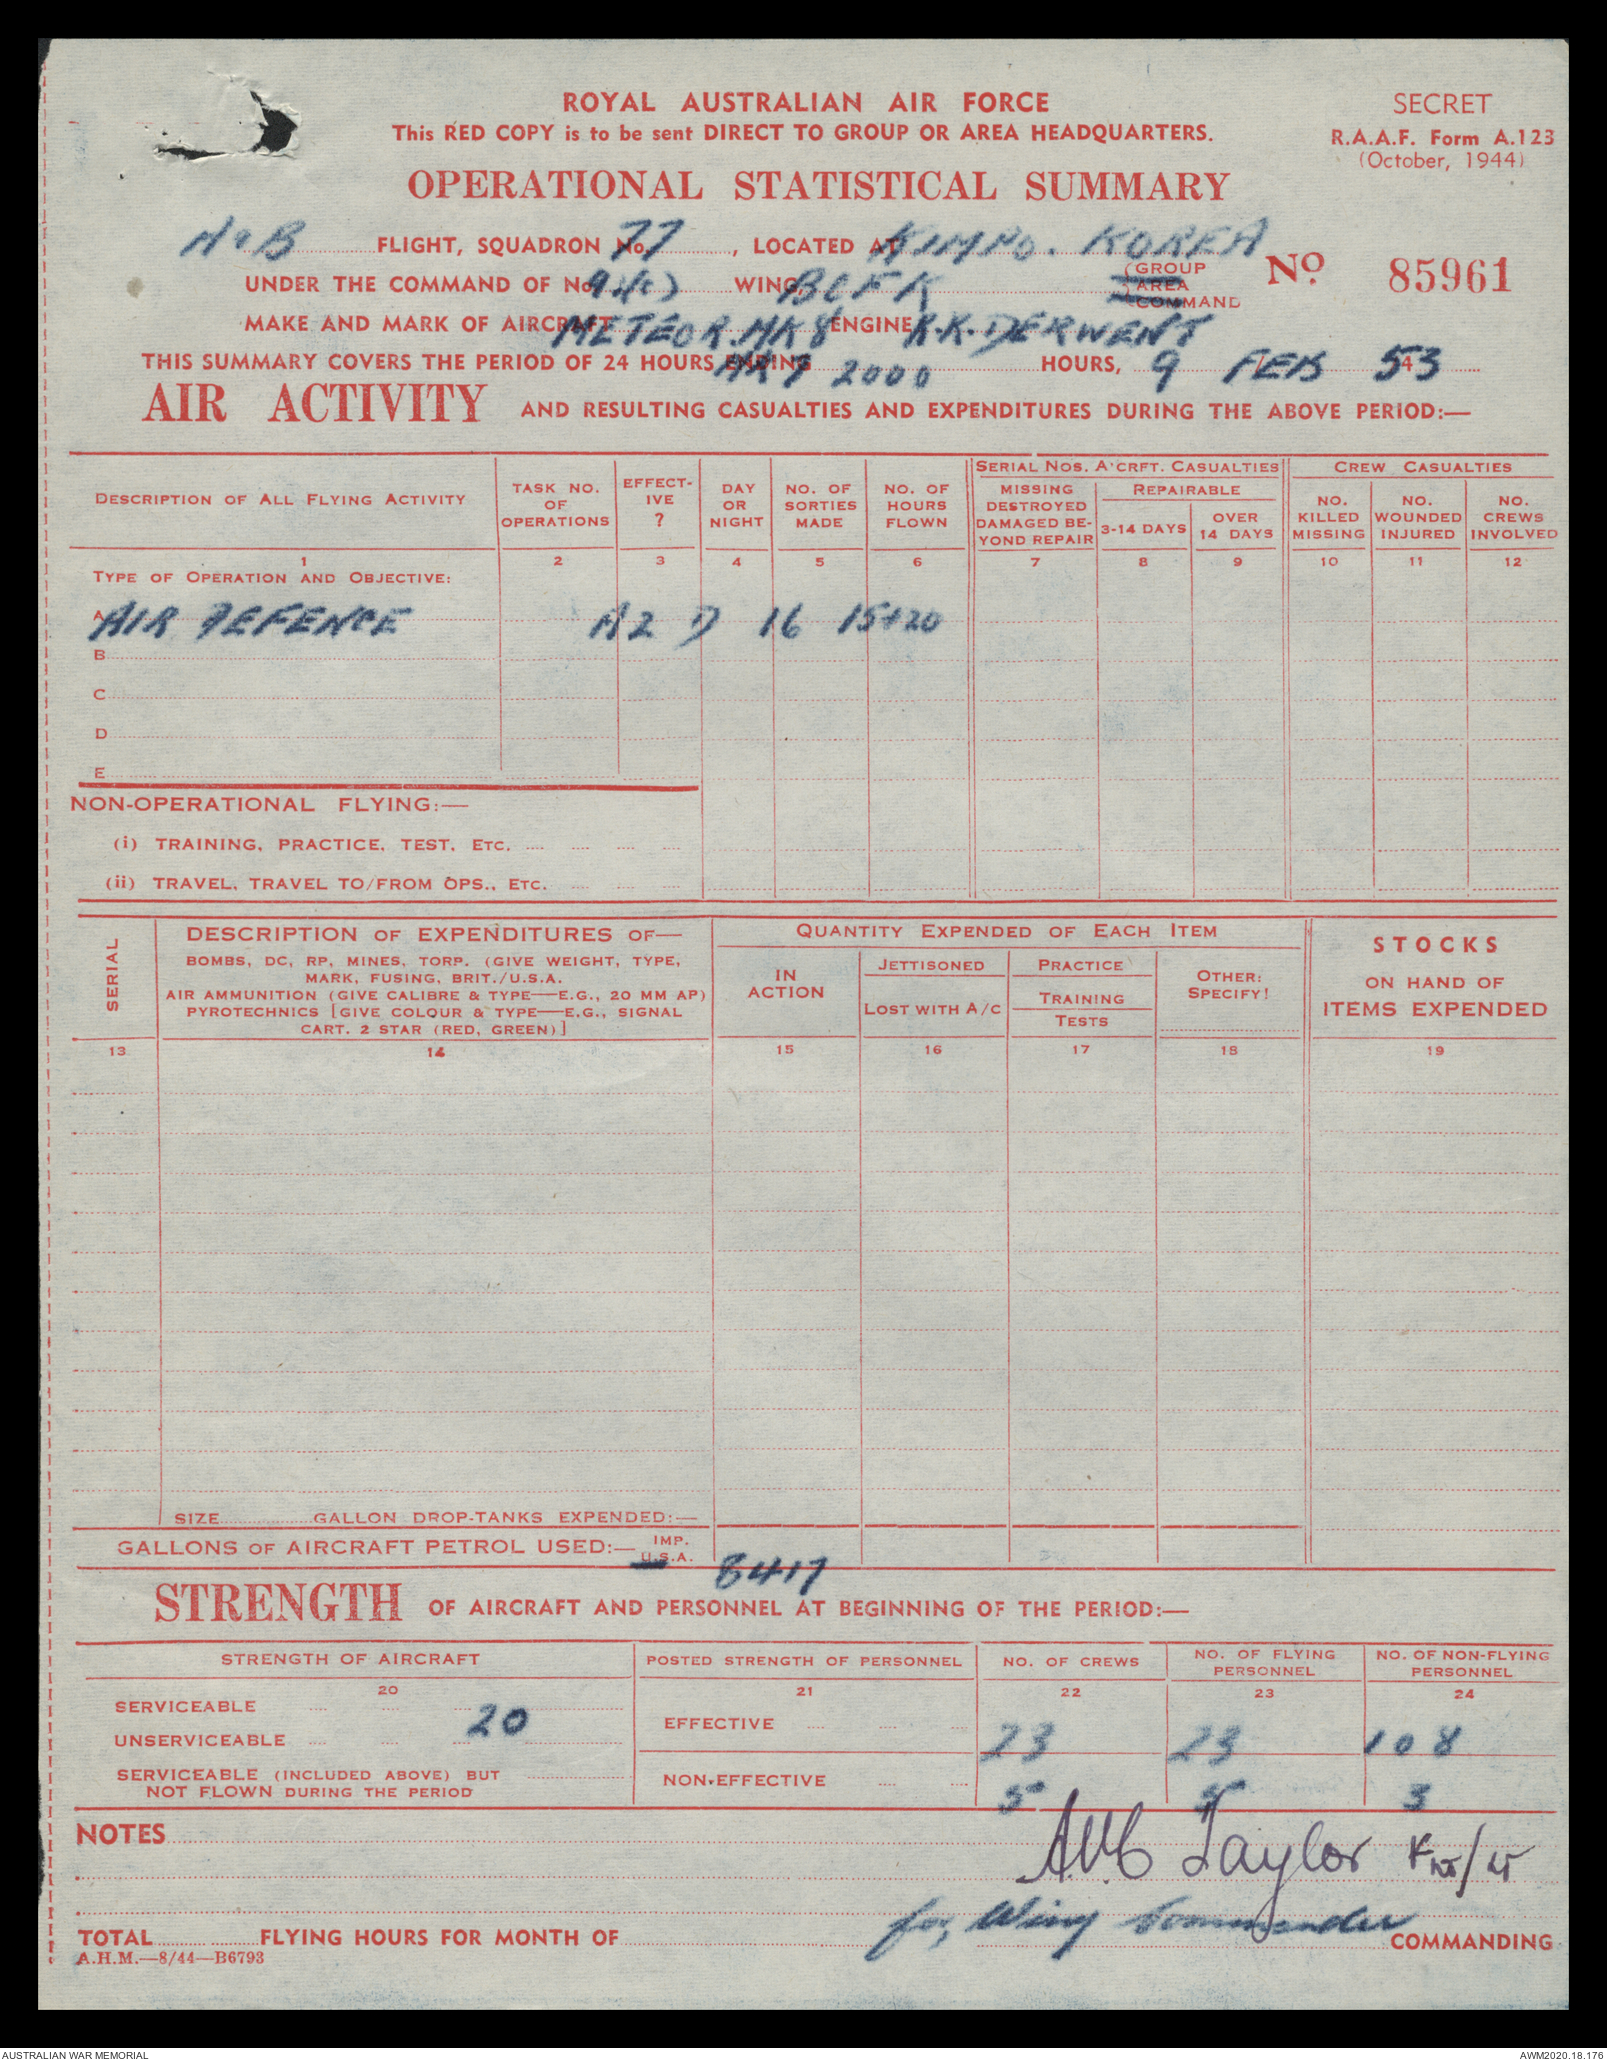 ROYAL AUSTRALIAN AIR FORCE
SECRET
This RED COPY is to be sent DIRECT TO GROUP OR AREA HEADQUARTERS.
R.A.A.F. Form A.123
(October, 1944)
OPERATIONAL STATISTICAL SUMMARY
FLIGHT, SQUADRON No. 77, LOCATED AT KIMPO. KOREA
UNDER THE COMMAND OF No. 91(c) WING, BCFK (GROUP AREA COMMAND No. 85961
MAKE AND MARK OF AIRCRAFT METEOR. MK 8 ENGINE R.R. DERWENT
THIS SUMMARY COVERS THE PERIOD OF 24 HOURS ENDING 2000 HOURS, 9 FEB 53
AIR ACTIVITY AND RESULTING CASUALTIES AND EXPENDITURES DURING THE ABOVE PERIOD:—
DESCRIPTION OF ALL FLYING ACTIVITY
TASK NO. OF OPERATIONS
EFFECT-IVE ?
DAY OR NIGHT
NO. OF SORTIES MADE
NO. OF HOURS FLOWN
SERIAL NOS. A'CRFT. CASUALTIES
MISSING DESTROYED DAMAGED BE-YOND REPAIR
REPAIRABLE
3-14 DAYS
OVER 14 DAYS
CREW CASUALTIES
NO. KILLED MISSING
NO. WOUNDED INJURED
NO. CREWS INVOLVED
1 2 3 4 5 6 7 8 9 10 11 12
TYPE OF OPERATION AND OBJECTIVE:
A AIR DEFENCE A2 D 16 15+20
B
C
D
E
NON-OPERATIONAL FLYING:—
(i) TRAINING, PRACTICE, TEST, ETC.
(ii) TRAVEL, TRAVEL TO/FROM OPS., ETC.
SERIAL
DESCRIPTION OF EXPENDITURES OF—
BOMBS, DC, RP, MINES, TORP. (GIVE WEIGHT, TYPE,
MARK, FUSING, BRIT./U.S.A.
AIR AMMUNITION (GIVE CALIBRE & TYPE—E.G., 20 MM AP)
PYROTECHNICS [GIVE COLOUR & TYPE—E.G., SIGNAL
CART. 2 STAR (RED, GREEN)]
QUANTITY EXPENDED OF EACH ITEM
IN ACTION
JETTISONED
LOST WITH A/C
PRACTICE
TRAINING
TESTS
OTHER:
SPECIFY!
STOCKS
ON HAND OF
ITEMS EXPENDED
13 14 15 16 17 18 19
SIZE GALLON DROP-TANKS EXPENDED:—
GALLONS OF AIRCRAFT PETROL USED:— IMP. U.S.A. 8417
STRENGTH OF AIRCRAFT AND PERSONNEL AT BEGINNING OF THE PERIOD:—
STRENGTH OF AIRCRAFT
POSTED STRENGTH OF PERSONNEL
NO. OF CREWS
NO. OF FLYING PERSONNEL
NO. OF NON-FLYING PERSONNEL
20 21 22 23 24
SERVICEABLE 20
UNSERVICEABLE
SERVICEABLE (INCLUDED ABOVE) BUT
NOT FLOWN DURING THE PERIOD
EFFECTIVE 23 23 108
NON-EFFECTIVE 5 5 3
NOTES
Taylor
for, Wing Commander
TOTAL FLYING HOURS FOR MONTH OF COMMANDING
A.H.M.—8/44—B6793
AUSTRALIAN WAR MEMORIAL
AWM2020.18.176